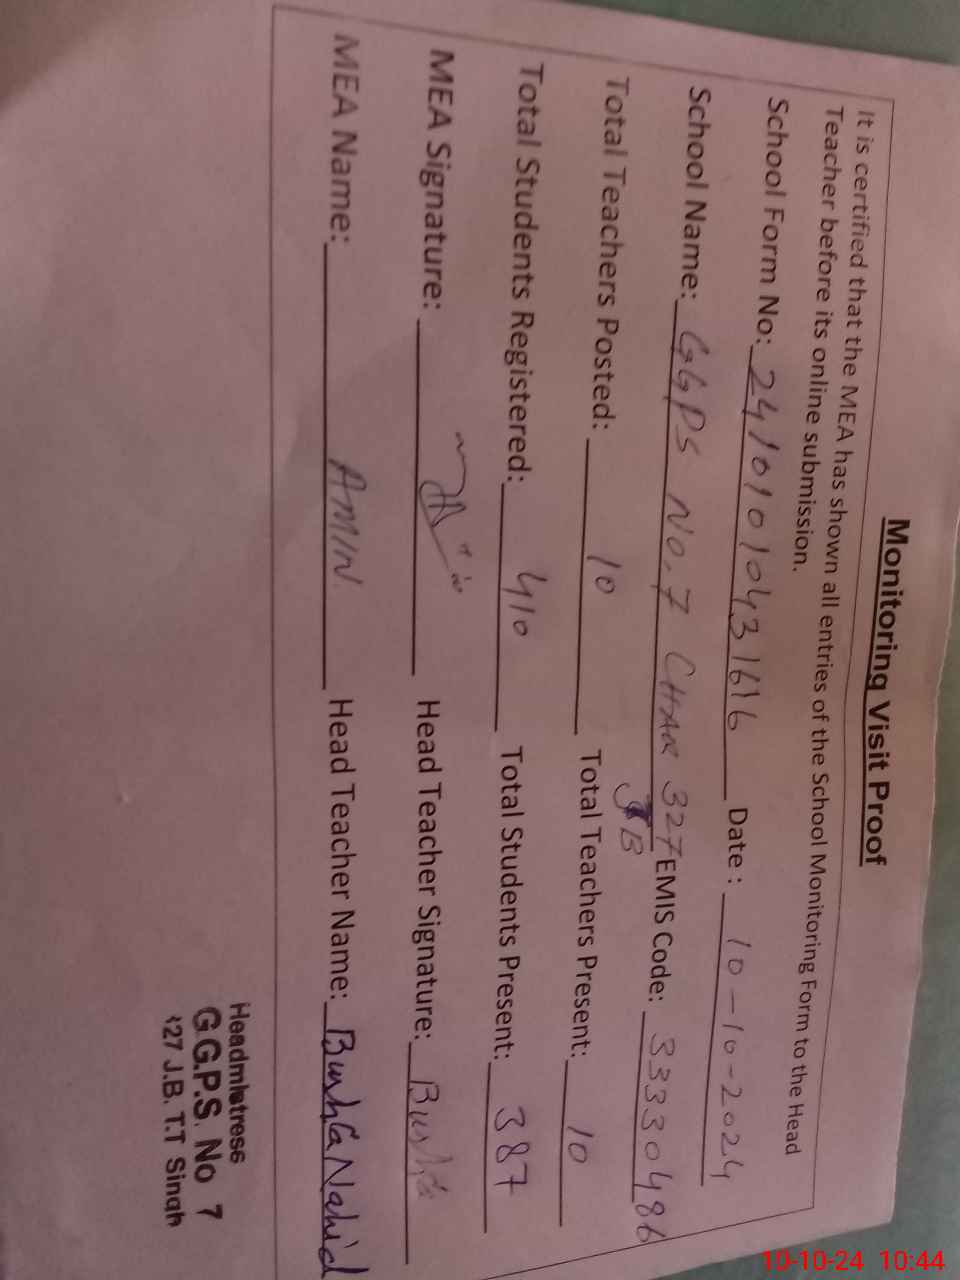 Monitoring Visit Proof
It is certified that the MEA has shown all entries of the School Monitoring Form to the Head
Teacher before its online submission.
School Form No: 24101010431616 Date : 10-10-2024
School Name: GGPS No.7 CHAK 327 JB EMIS Code: 33330486
Total Teachers Posted: 10 Total Teachers Present: 10
Total Students Registered: 410 Total Students Present: 387
MEA Signature: Head Teacher Signature: Bushra
MEA Name: AMIN Head Teacher Name: Bushra Nahid
Headmistress
G.G.P.S. No 7
327 J.B. T.T Singh
10-10-24 10:44